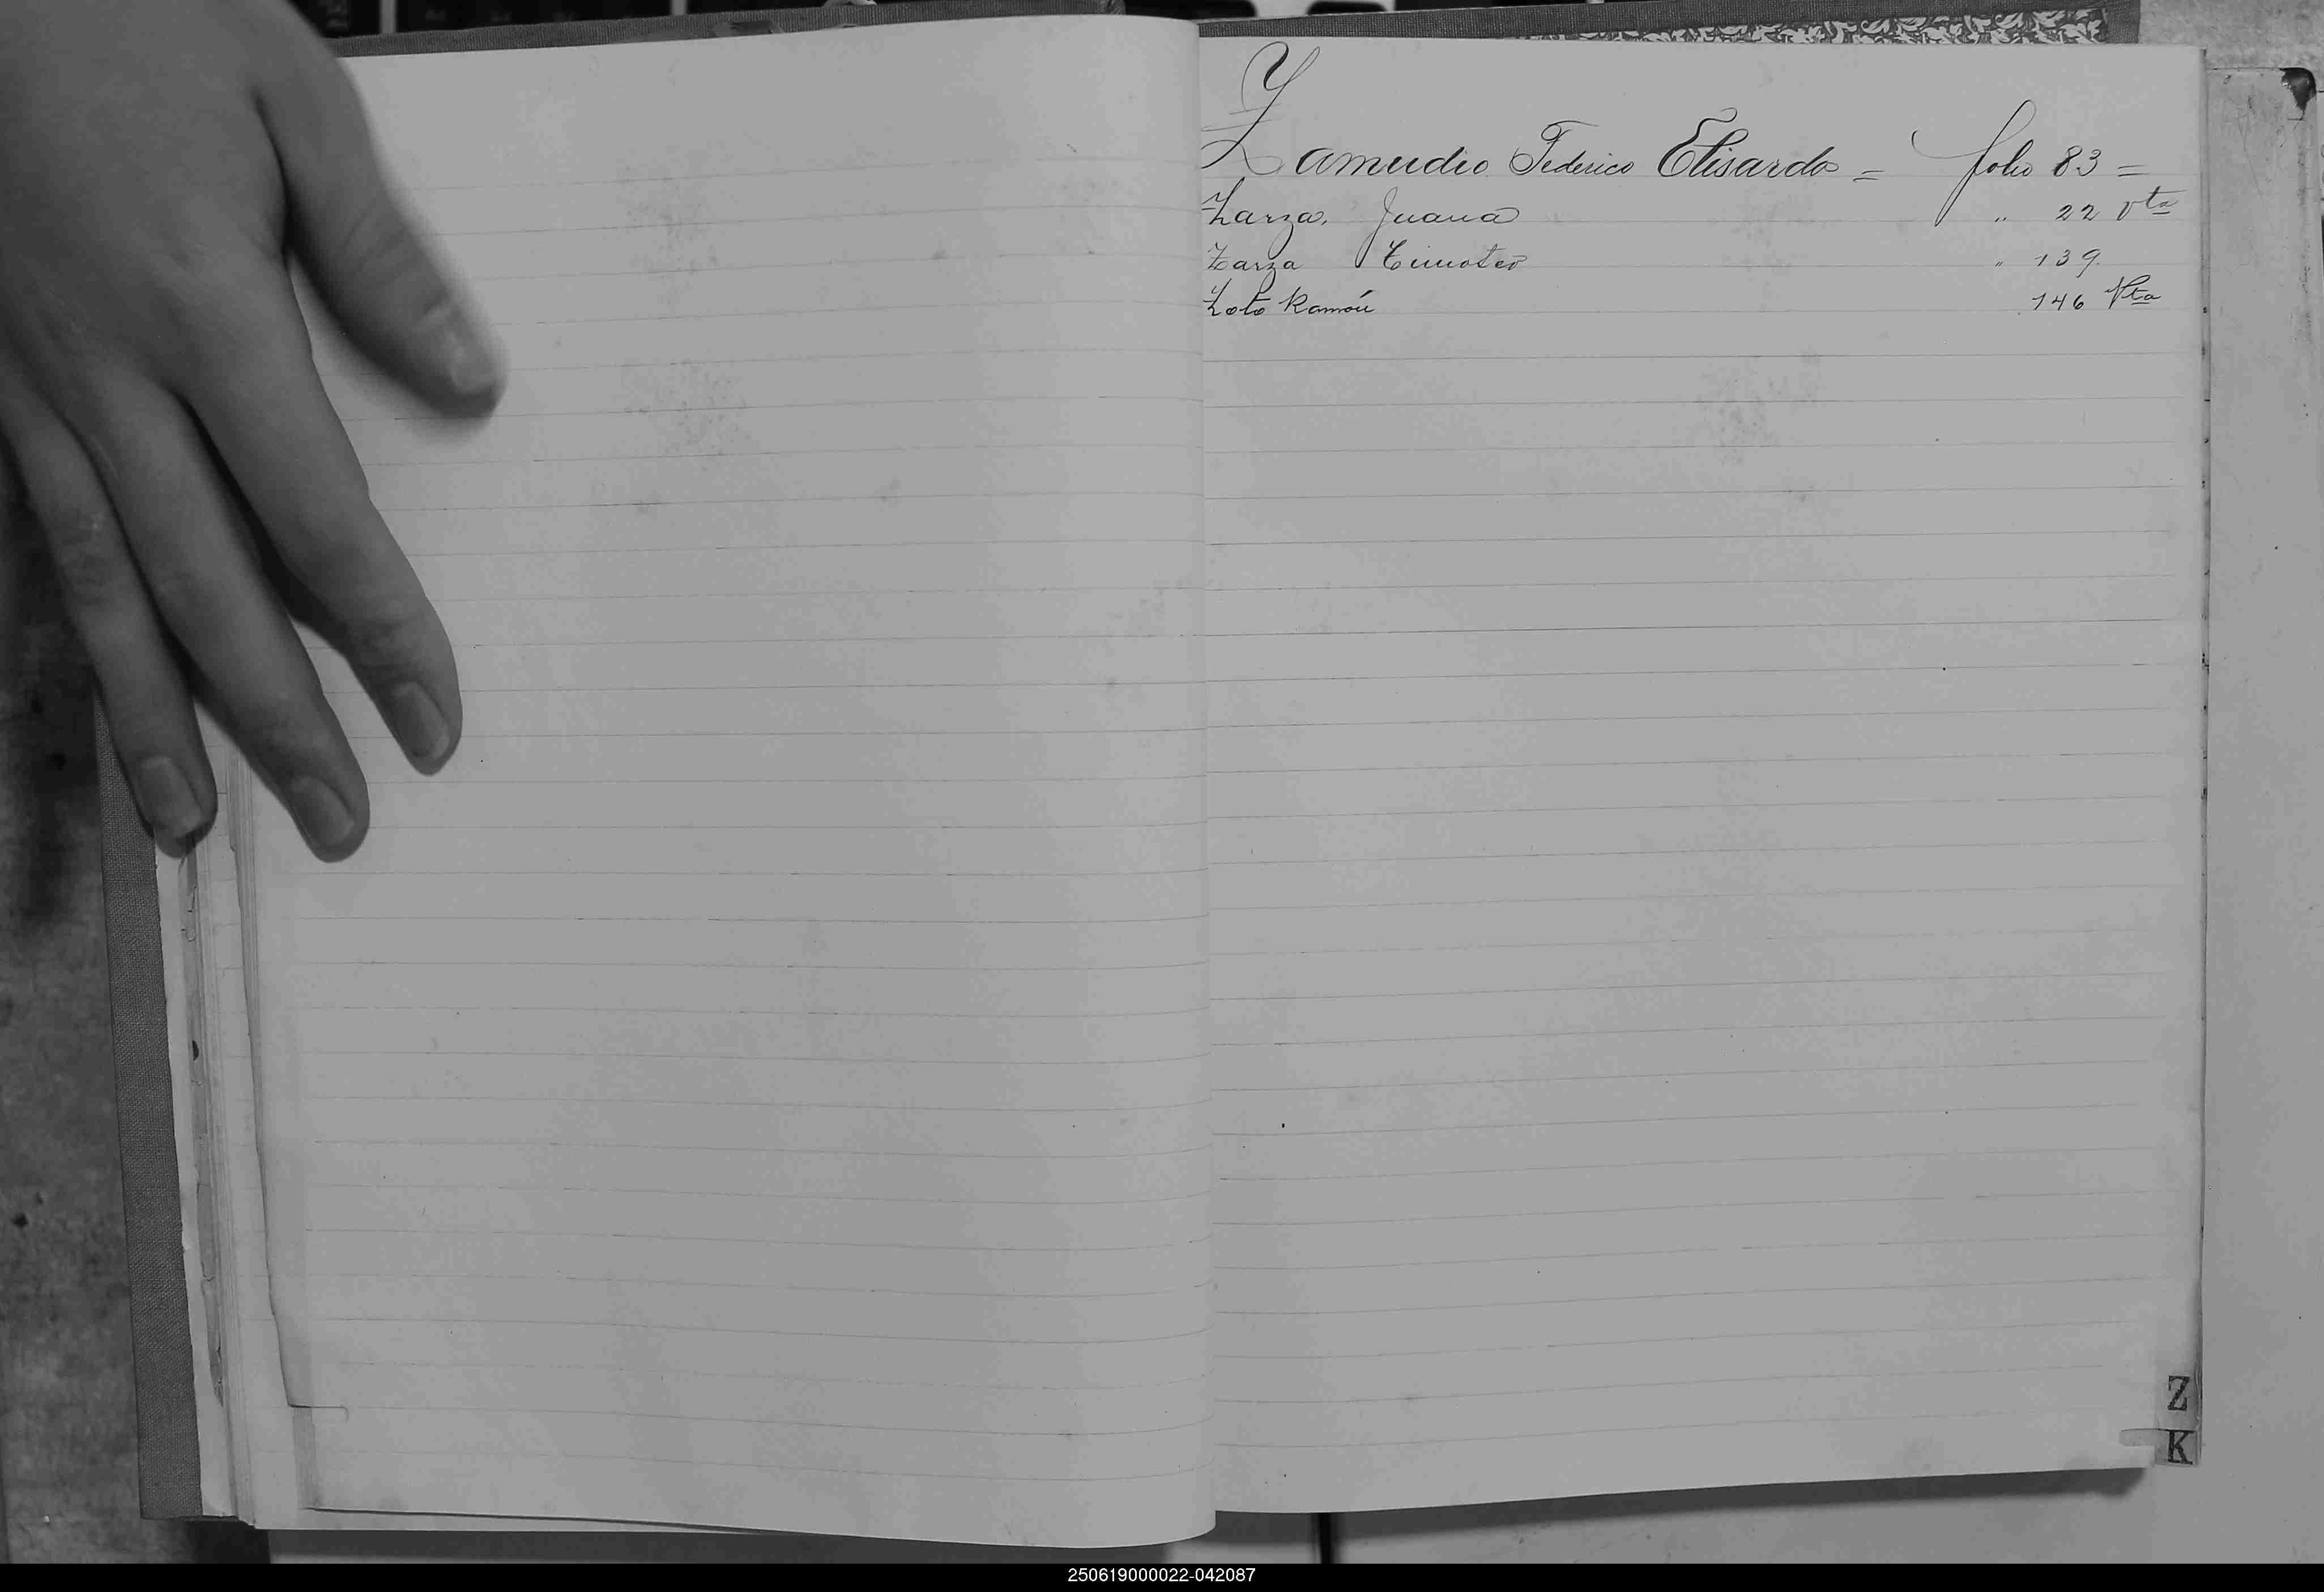 Zamudio Federico Elisardo = folio 83 =
Zarza, Juana " 22 vta
Zarza Timoteo " 139.
Zoto Ramón 146 Vta
Z
K
250619000022-042087